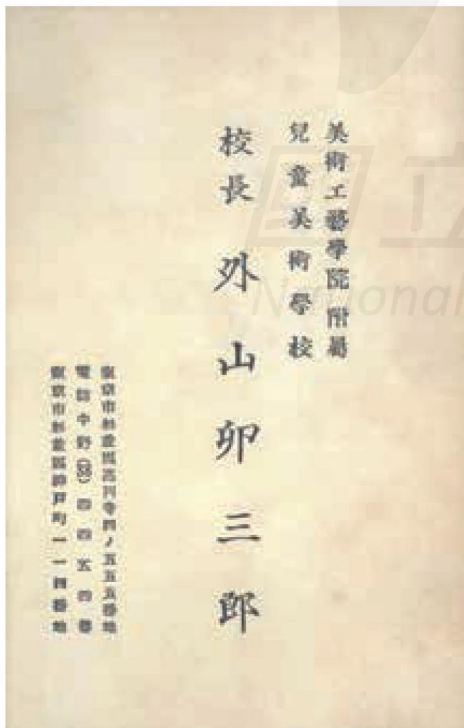 美術工藝學院附屬
兒童美術學校
校長 外山卯三郎
東京市杉並區高円寺四ノ五五五番地
電話中野(38)四四五四番
東京市杉並區神戸町一一四番地
國立
National